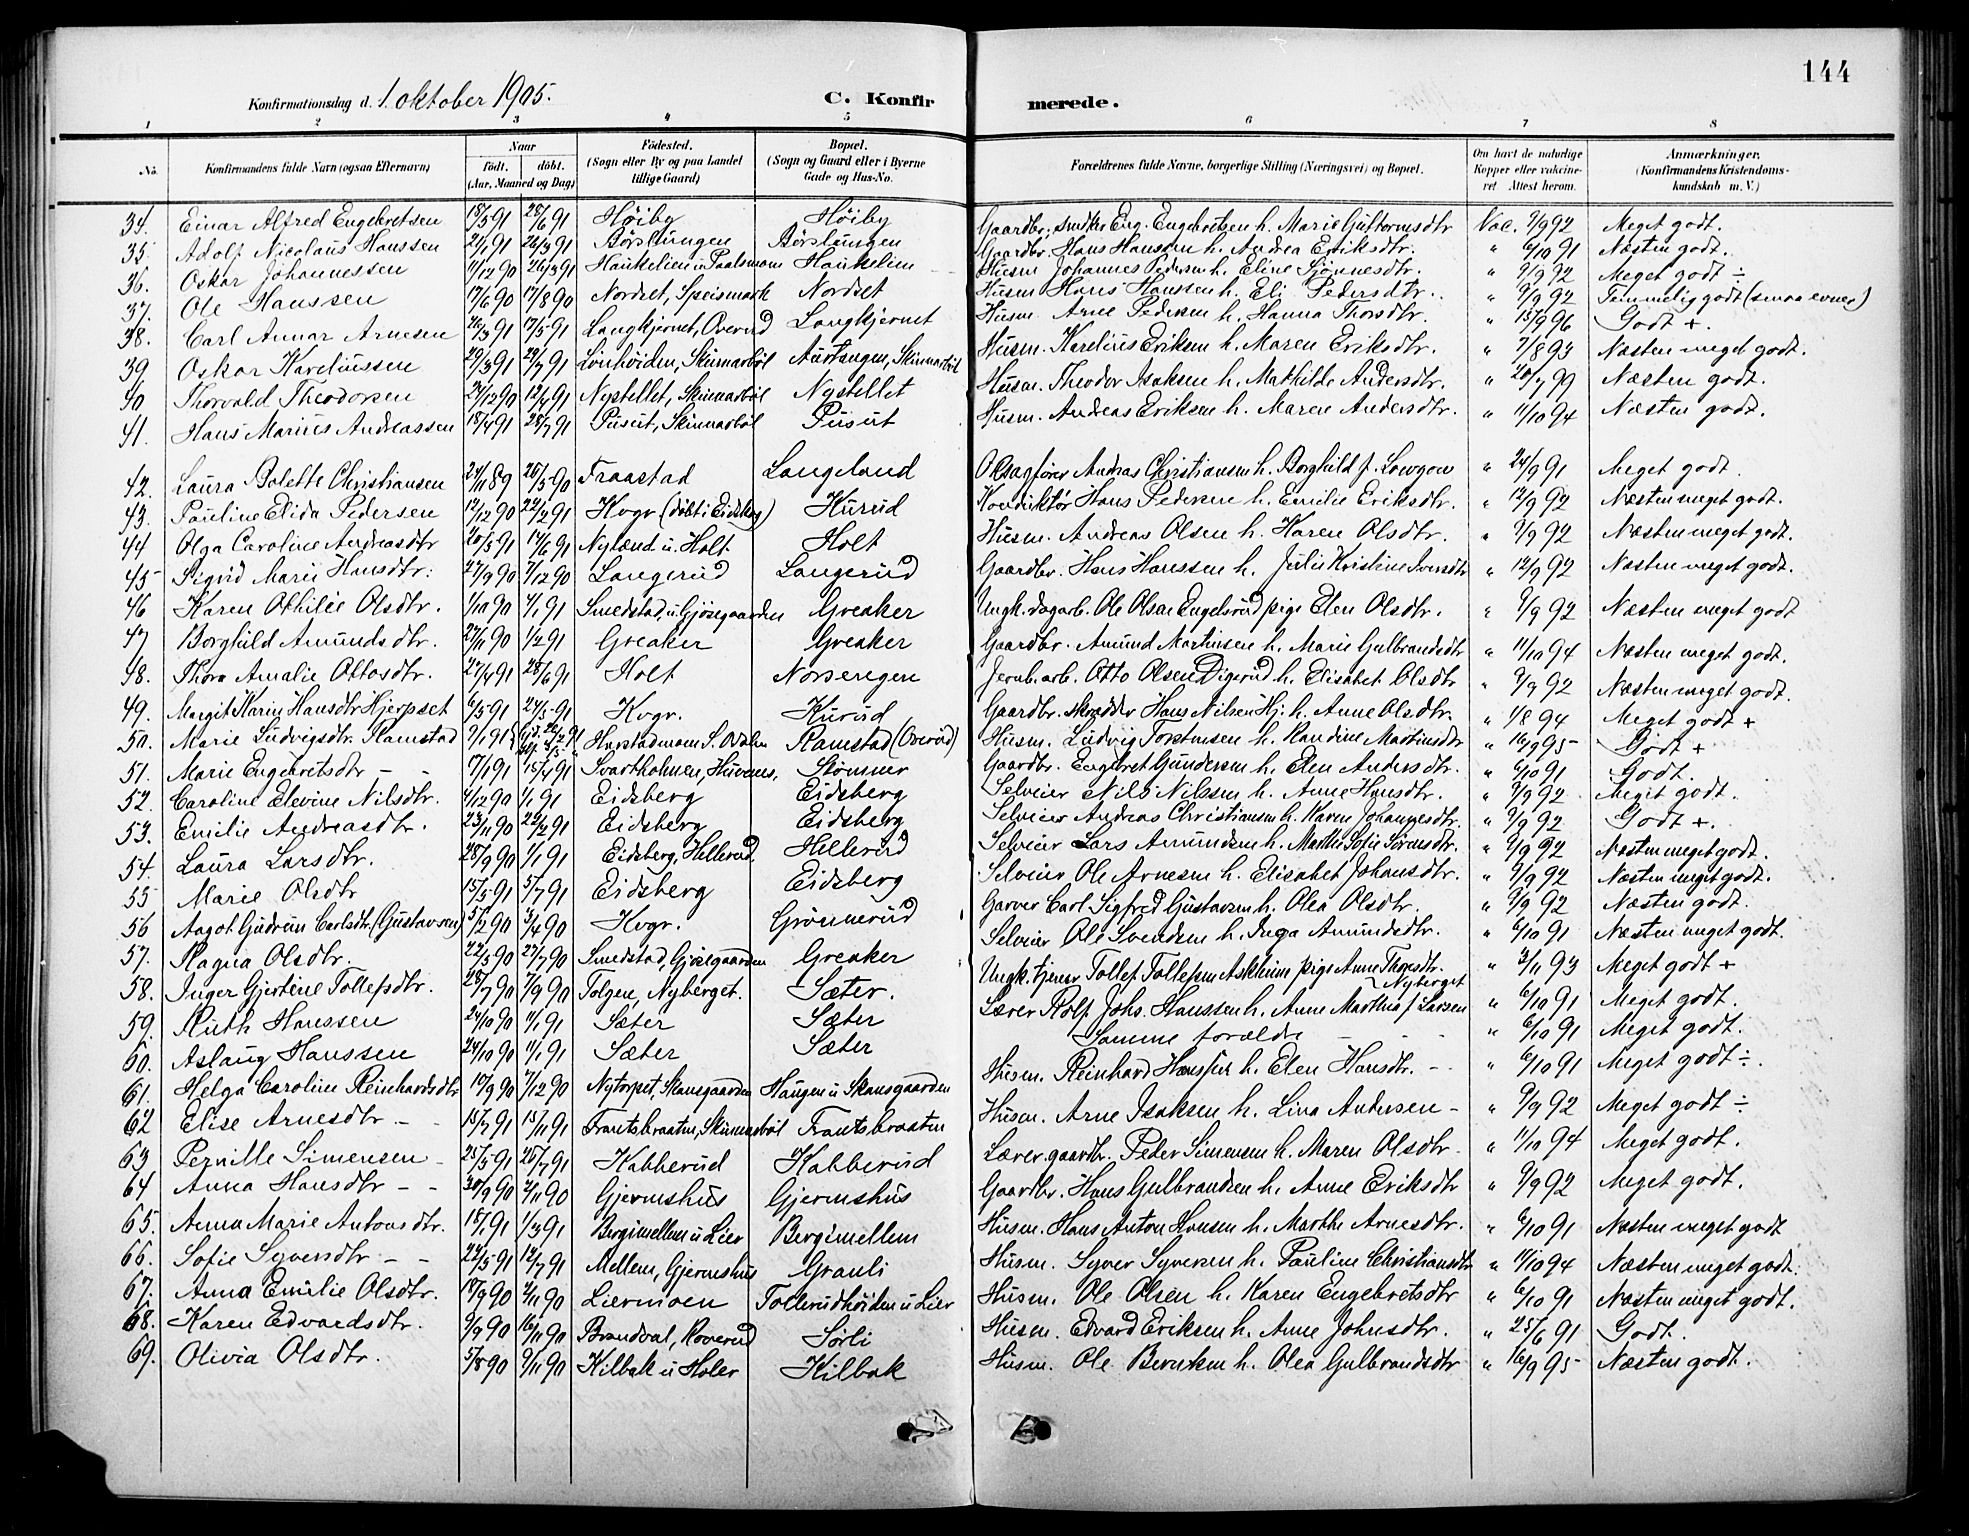 144
Konfirmationsdag d. 1. oktober 1905.
C. Konfirmerede.
1 2 3 4 5 6 7 8
No. Konfirmandens fulde Navn (ogsaa Efternavn) Naar født. døbt. (Aar, Maaned og Dag) Fødested. (Sogn eller By og paa Landet tillige Gaard) Bopæl. (Sogn og Gaard eller i Byerne Gade og Hus-No. Forældrenes fulde Navne, borgerlige Stilling (Næringsvei) og Bopæl. Om havt de naturlige Kopper eller vaccineret. Attest herom. Anmærkninger. (Konfirmandens Kristendomskundskab m. V.)
34. Einar Alfred Engebretsen 18/3 91 28/6 91 Høiby Høiby Gaardbr., smed Eng. Engebretsen h. Marie Guttormsdtr Vac. 9/9 92 Meget godt.
35. Adolf Nicolaus Hanssen 21/1 91 26/3 91 Børslungen Børslungen Gaardbr. Hans Hanssen h. Andrea Eriksdtr. " 6/10 91 Næsten godt.
36. Oskar Johannessen 11/12 90 26/3 91 Haukelien u Paalsmoen Haukelien Husm Johannes Pedersen h. Eline Sjønnesdtr. " 9/9 92 Meget godt ÷
37. Ole Hanssen 17/6 90 17/8 90 Nordset, Speismark Nordset Husm Hans Hanssen h. Eli Pedersdtr. " 9/9 92 Temmelig godt (smaa evner)
38. Carl Annar Arnesen 26/3 91 17/5 91 Langkjernet, Overud Langkjernet Husm. Arne Pedersen h. Hanna Thorsdtr. " 15/9 96 Godt +.
39 Oskar Kareliussen 29/3 91 29/7 91 Lønhøiden, Skinnarbøl Aurtangen, Skinnarbøl Husm. Karelius Eriksen h. Maren Eriksdtr. " 7/8 93 Næsten meget godt.
40 Thorvald Theodorsen 21/12 90 12/4 91 Nystellet, Skinnarbøl Nystellet Husm. Theodor Isaksen h. Mathilde Andersdtr. " 20/7 99 Næsten godt.
41. Hans Marius Andreassen 18/4 91 28/7 91 Pusut, Skinnarbøl Pusut Husm. Andreas Eriksen h. Maren Andersdtr. " 11/10 94 Næsten godt.
42. Laura Bolette Christiansen 24/11 89 26/3 90 Fraastad Langeland O.Sagfører Andreas Christiansen h. Borghild f. Lowzow " 24/9 91 Meget godt.
43. Pauline Elida Pedersen 12/12 90 22/2 91 Kvgr. (døbt i Eidskog) Kurud Konduktør Hans Pedersen h. Emilie Eriksdtr. " 12/9 92 Næsten meget godt.
44 Olga Caroline Andreasdtr 20/5 91 14/6 91 Nylænd u. Holt. Holt Husm. Andreas Olsen h. Karen Olsdtr. " 9/9 92 Næsten meget godt.
45 Sigrid Marie Hansdtr: 27/9 90 7/12 90 Langerud Langerud Gaardbr. Hans Hanssen h. Julie Kristine Iversdtr " 12/9 92 Næsten meget godt.
46 Karen Othilie Olsdtr. 1/10 90 4/1 91 Smedstad u. Gjøsegaarden Greaker Ungk. dagarb. Ole Olsen Engelsrud pige Elen Olsdtr. " 9/9 92 Næsten meget godt
47 Borghild Amundsdtr. 27/11 90 1/2 91 Greaker Greaker Gaardbr. Amund Martinsen h. Marie Gulbrandsdtr " 11/10 94 Næsten meget godt.
48. Thora Amalie Ottosdtr. 27/4 91 28/6 91 Holt Norsengen Jernb.arb. Otto Olsen Digerud h. Elisabet Olsdtr " 9/9 92 Næsten meget godt.
49. Margit Karin Hansdtr Hjerpset 6/5 91 24/5 91 Kvgr. Kurud Gaardbr. skrædder Hans Nilsen Hj. h. Anne Olsdtr. " 1/8 94 Meget godt +
50. Marie Ludvigsdtr. Ramstad 9/1 91 Harstadmoen S. Odalen Ramstad (Overud) Husm. Ludvig Torstensen h. Kandine Martinsdtr " 16/9 95 Godt +
51. Marie Engebretsdtr - - 7/1 91 15/4 91 Svartholmen, Huvenes. Stømner Gaardbr. Engebret Gundersen h. Elen Andersdtr. " 6/10 91 Godt.
52. Caroline Elevine Nilsdtr. 4/12 90 1/1 91 Eidsberg Eidsberg Selveier Nils Nilssen h. Anne Hansdtr. " 9/9 92 Meget godt.
53. Emilie Andreasdtr. 23/11 90 22/2 91 Eidsberg Eidsberg Selveier Andreas Christiansen h. Karen Johannesdtr. " 9/9 92 Godt +.
54. Laura Larsdtr. 28/9 90 1/1 91 Eidsberg, Hellerud. Hellerud Selveier Lars Amundsen h. Marthe Sofie Sørensdtr. " 9/9 92 Næsten meget godt.
55 Marie Olsdtr 15/5 91 5/7 91 Eidsberg Eidsberg Selveier Ole Arnesen h. Elisabet Johansdtr. " 9/9 92 Næsten meget godt.
56 Aagot Gudrun Carlsdtr. (Gustavsen) 5/2 90 3/4 90 Kvgr. Grønnerud Garver Carl Sigfred Gustavsen h. Olea Olsdtr. " 9/9 92 Næsten godt.
57. Ragna Olsdtr. 22/5 90 27/7 90 Smedstad, Gjøsegaarden Greaker Selveier Ole Svendsen h. Inga Amundsdtr. " 6/10 91 Næsten meget godt.
58. Inger Gjertine Tollefsdtr. 28/7 90 7/9 90 Tolgen, Nyberget. Sæter. Ungk. tjener Tollef Tollefsen Askheim pige Anne Thoresdtr. Nyberget " 3/11 93 Meget godt +
59. Ruth Hanssen 24/10 90 11/1 91 Sæter Sæter Lærer Rolf Johs. Hanssen h. Anne Marthea f Larsen " 6/10 91 Meget godt.
60. Aslaug Hanssen 24/10 90 11/1 91 Sæter Sæter Samme forældre - - - " 6/10 91 Meget godt.
61. Helga Caroline Reinhardsdtr 17/9 90 7/12 90 Nytorpet, Skansgaarden Haugen u Skansgaarden Husm. Reinhard Hanssen h. Elen Hansdtr. - - " 6/10 91 Meget godt ÷.
62 Elise Arnesdtr - - 15/7 91 15/11 91 Frantsbraaten, Skinnarbøl Frantsbraaten Husm. Arne Isaksen h. Lina Andersen - " 9/9 92 Meget godt ÷
63 Pernille Simensen - 25/5 91 26/7 91 Kabberud Kabberud Lærer. gaardbr. Peder Simensen h. Maren Olsdtr - " 11/10 94 Meget godt.
64 Anna Hansdtr - - 30/9 90 2/11 90 Gjermshus Gjermshus Gaardbr. Hans Gulbrandsen h. Anne Eriksdtr " 9/9 92 Meget godt.
65. Anna Marie Antonsdtr. 18/1 91 1/3 91 Bergimellem u Lier Bergimellem Husm. Hans Anton Hansen h. Marthe Arnesdtr. " 6/10 91 Næsten meget godt
66. Sofie Syversdtr - - 22/5 91 12/7 91 Mellem, Gjermshus Granli Husm. Syver Syversen h. Pauline Christiansdtr " 11/10 94 Næsten meget godt.
67. Anna Emilie Olsdtr. 19/9 90 2/11 90 Liermoen Tollerudhøiden u Lier Husm. Ole Olsen h. Karen Engebretsdtr " 6/10 91 Næsten meget godt.
68. Karen Edvardsdtr. 9/9 90 16/11 90 Brandval, Roverud Sørli Husm. Edvard Eriksen h. Anne Johnsdtr. " 25/6 91 Godt.
69. Olivia Olsdtr. 5/8 90 9/11 90 Kilbak u Holer Kilbak Husm. Ole Berntsen h. Olea Gulbrandsdtr " 16/9 95 Næsten godt.